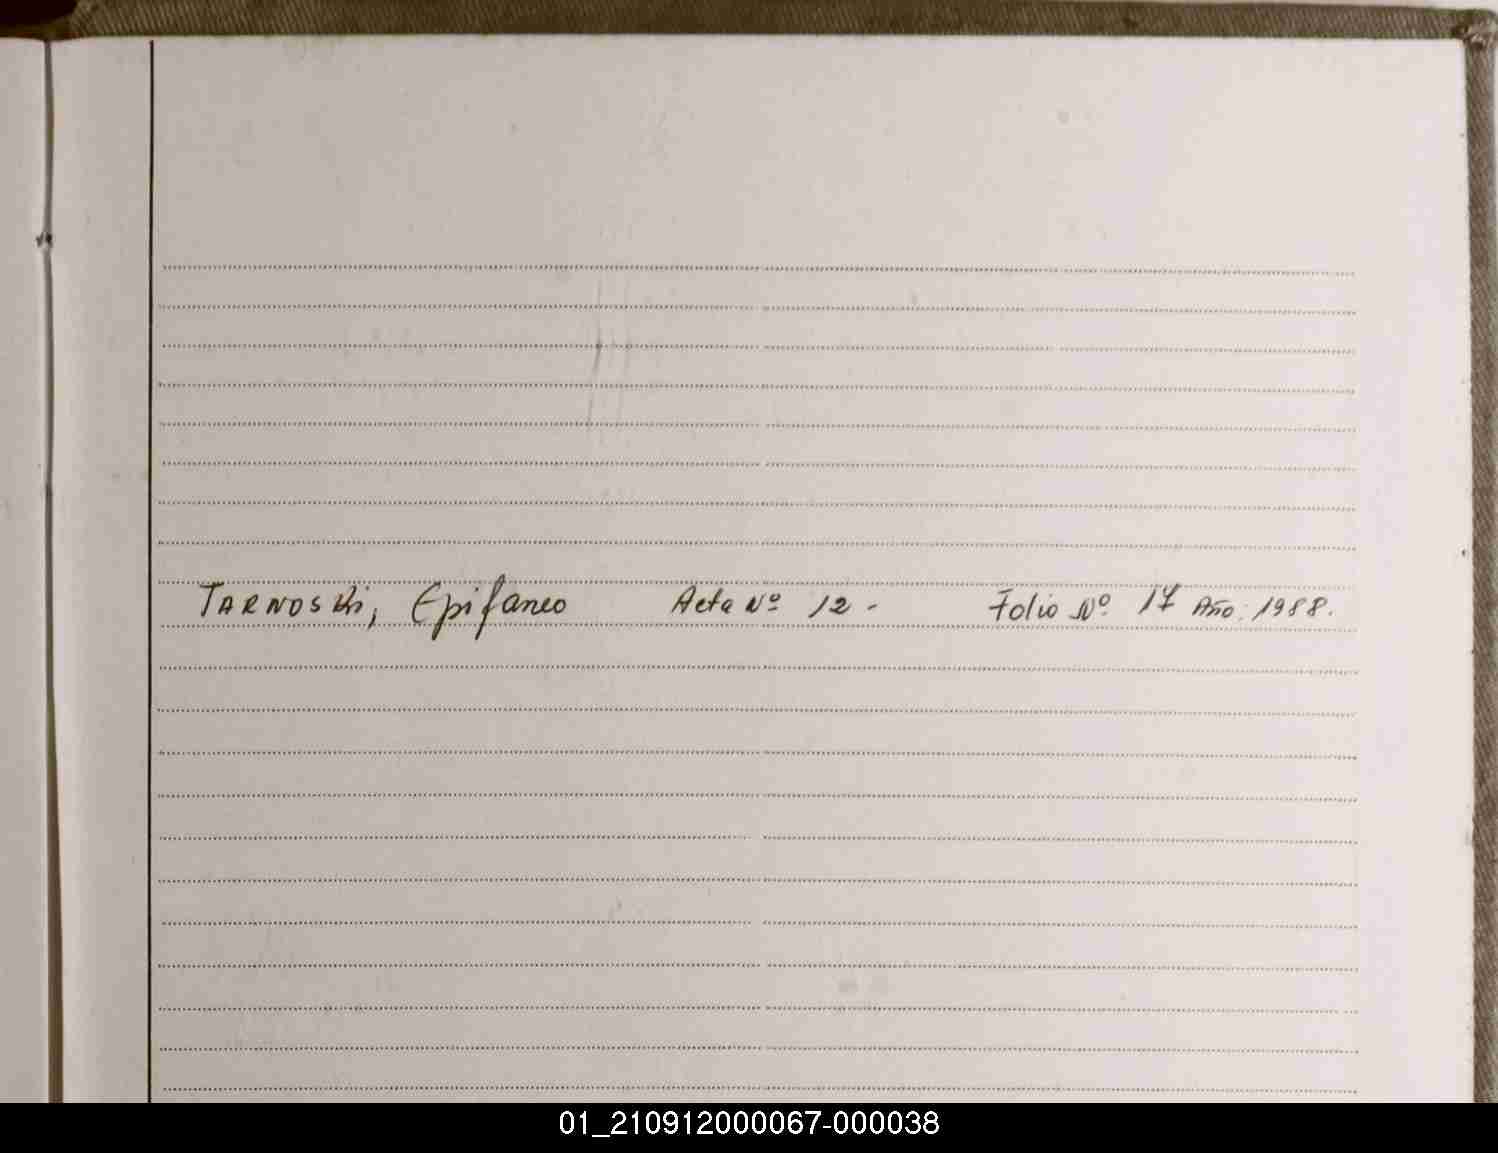 TARNOSKi, Epifaneo Acta Nº 12 - Folio Nº 17 Año. 1988.
01_210912000067-000038